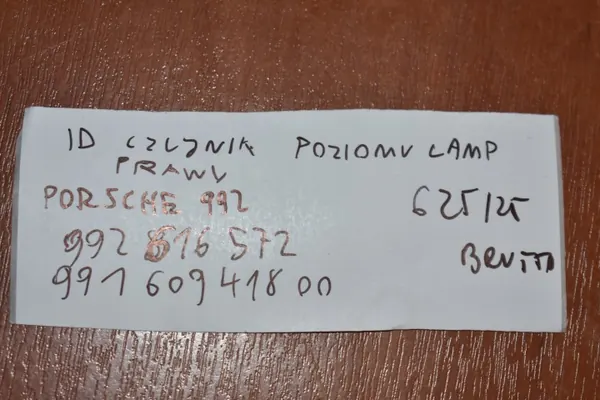 ID CZUJNIK POZIOMU LAMP
PRAWY
PORSCHE 992
625/25
992 616 572
BRUTTO
991 609 418 00